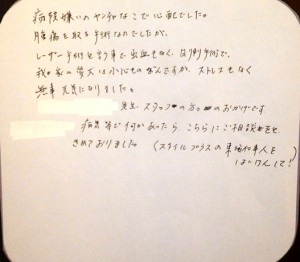 病院嫌いのヤンチャなこで心配でした。
腫瘍を取る手術なのでしたが、
レーザー手術と言う事で出血もなく、日帰り手術で、
我が家の愛犬は小心ものなんですが、ストレスもなく
無事元気になりました。
先生、スタッフの方のおかげです
病気等で何かあったら、こちらにご相談
きめておりました。（スタイルプラスの東 を
見て！